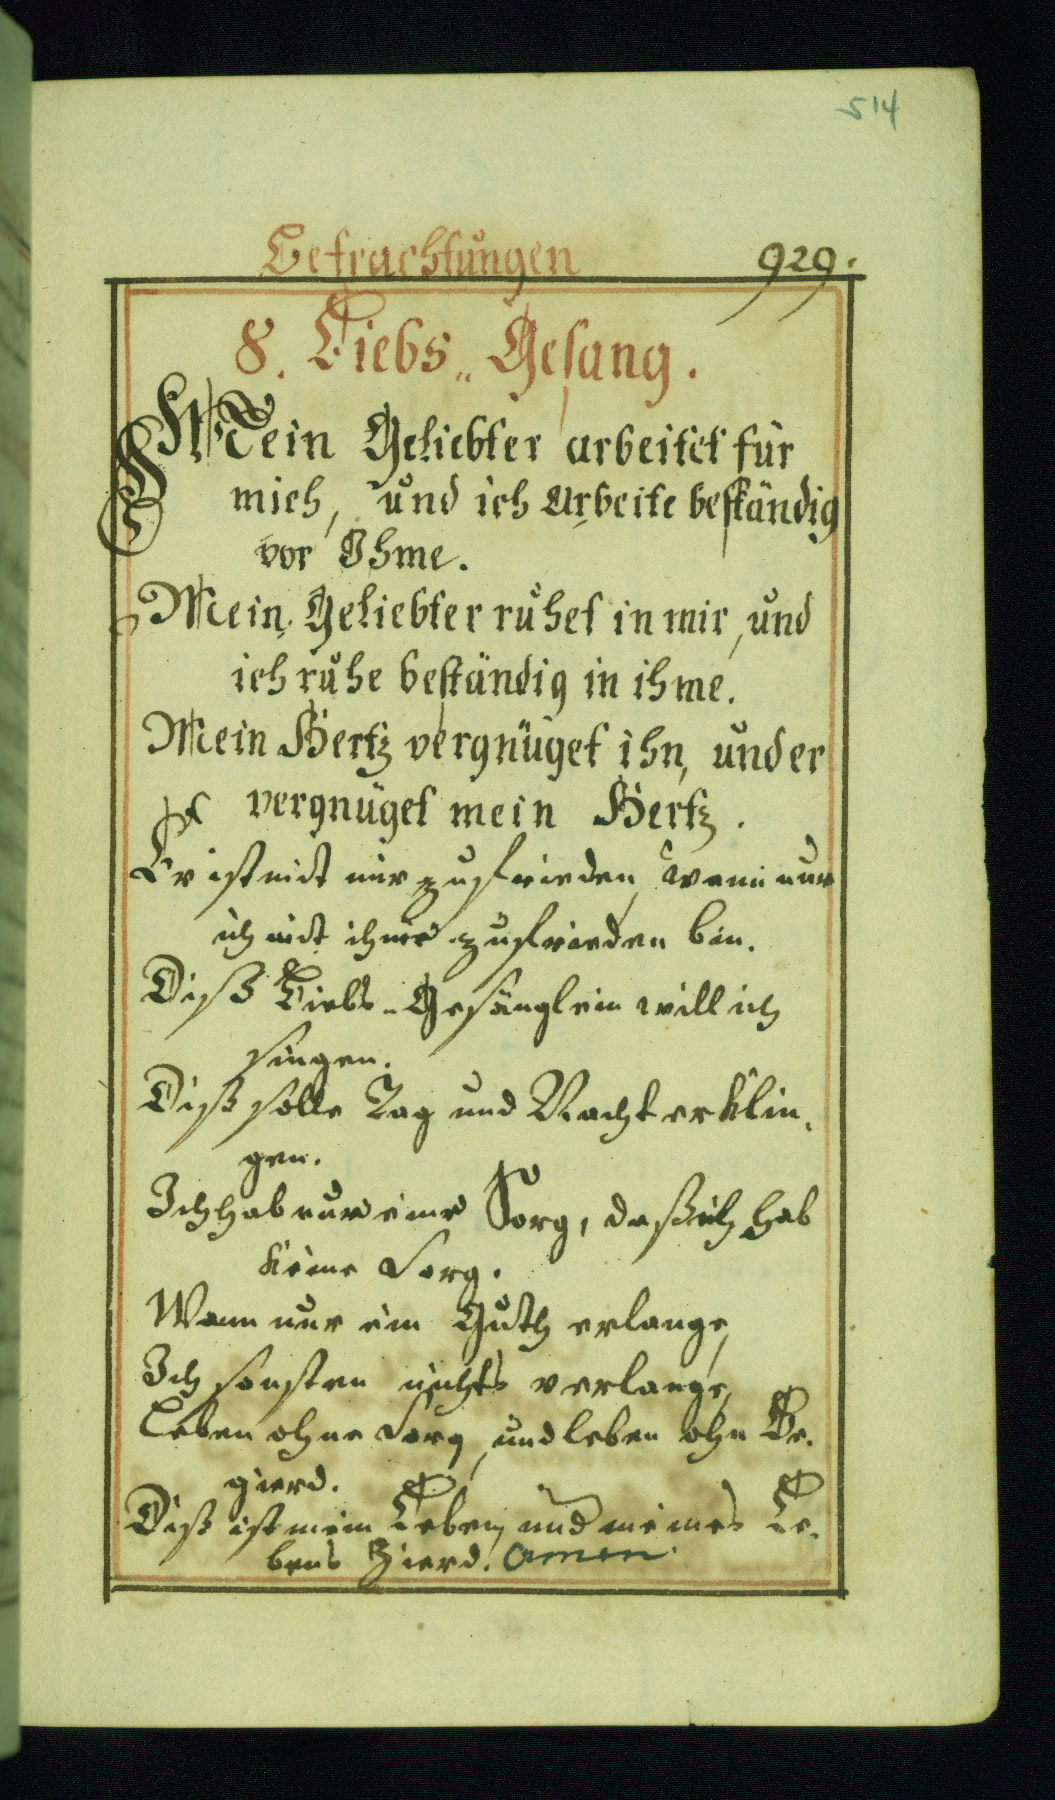 514
Betrachtungen 929.
8. Liebs„ Gesang.
Mein Geliebter arbeitet für
mich, und ich arbeite beständig
vor Ihme.
Mein Geliebter ruhet in mir, und
ich ruhe beständig in ihme.
Mein Hertz vergnüget ihn, und er
vergnüget mein Hertz.
Er ist mit mir zufrieden, wann nur
ich mit ihme zufrieden bin.
Diß Liebs-Gesänglein will ich
singen.
Diß solle Tag und Nacht erklin,
gen.
Ich hab nur eine Sorg, daß ich hab
keine Sorg.
Wann nur ein Guth erlange,
Ich sonsten nichts verlange,
Leben ohne Sorg, und leben ohn Be,
gierd.
Diß ist mein Leben, und meines Le,
bens Zierd. Amen.